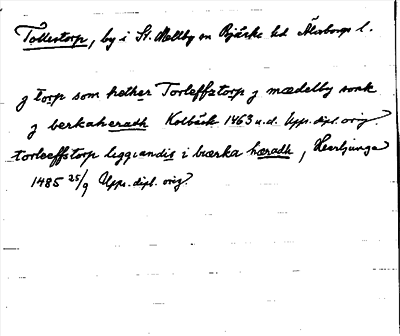 Töllestorp, by i St. Mellby sn Bjärke hd Älvsborgs l.
j torp som hether Torleffstorp j mædelby sonk
j berkaheradh Kolbäck 1463 u.d. Upps. dipl. orig.
torleeffstorp liggiandis i bærka hæradh, Herrljunga
1485 25/9 Upps. dipl. orig.